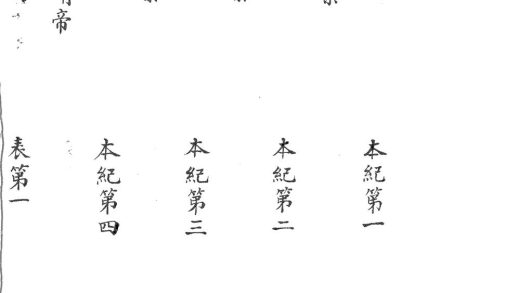 本紀第一
本紀第二
本紀第三
本紀第四
帝
表第一